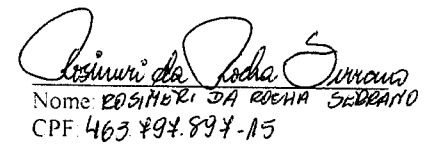 Rosimeri da Rocha Serrano
Nome: ROSIMERI DA ROCHA SERRANO
CPF: 463.797.897-15